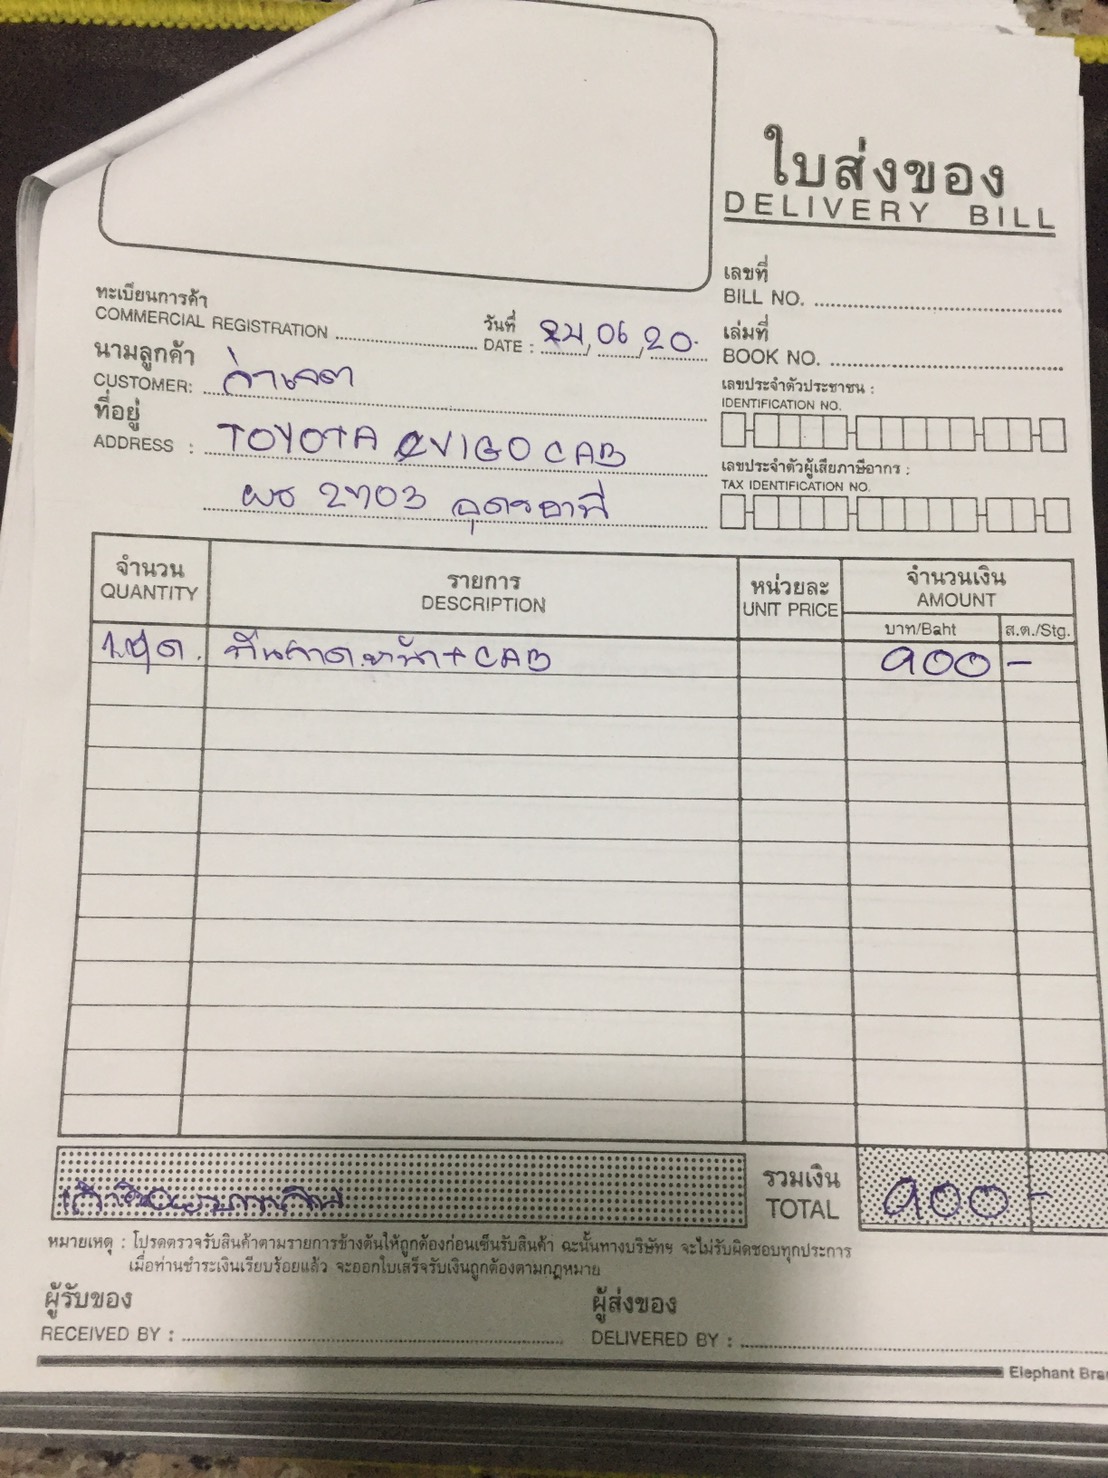 ใบส่งของ
DELIVERY BILL
เลขที่
BILL NO.
ทะเบียนการค้า
COMMERCIAL REGISTRATION
วันที่
DATE : 24, 06, 20.
เล่มที่
BOOK NO.
นามลูกค้า
CUSTOMER:
เลขประจำตัวประชาชน :
IDENTIFICATION NO.
ที่อยู่
ADDRESS : TOYOTA VIGO CAB
ผธ 2703 อุดรธานี
เลขประจำตัวผู้เสียภาษีอากร :
TAX IDENTIFICATION NO.
จำนวน
QUANTITY
รายการ
DESCRIPTION
หน่วยละ
UNIT PRICE
จำนวนเงิน
AMOUNT
บาท/Baht
ส.ต./Stg.
1.ชุด. + CAB 900 -
รวมเงิน
TOTAL 900 -
หมายเหตุ : โปรดตรวจรับสินค้าตามรายการข้างต้นให้ถูกต้องก่อนเซ็นรับสินค้า ฉะนั้นทางบริษัทฯ จะไม่รับผิดชอบทุกประการ
เมื่อท่านชำระเงินเรียบร้อยแล้ว จะออกใบเสร็จรับเงินถูกต้องตามกฎหมาย
ผู้รับของ
RECEIVED BY :
ผู้ส่งของ
DELIVERED BY :
Elephant Bra